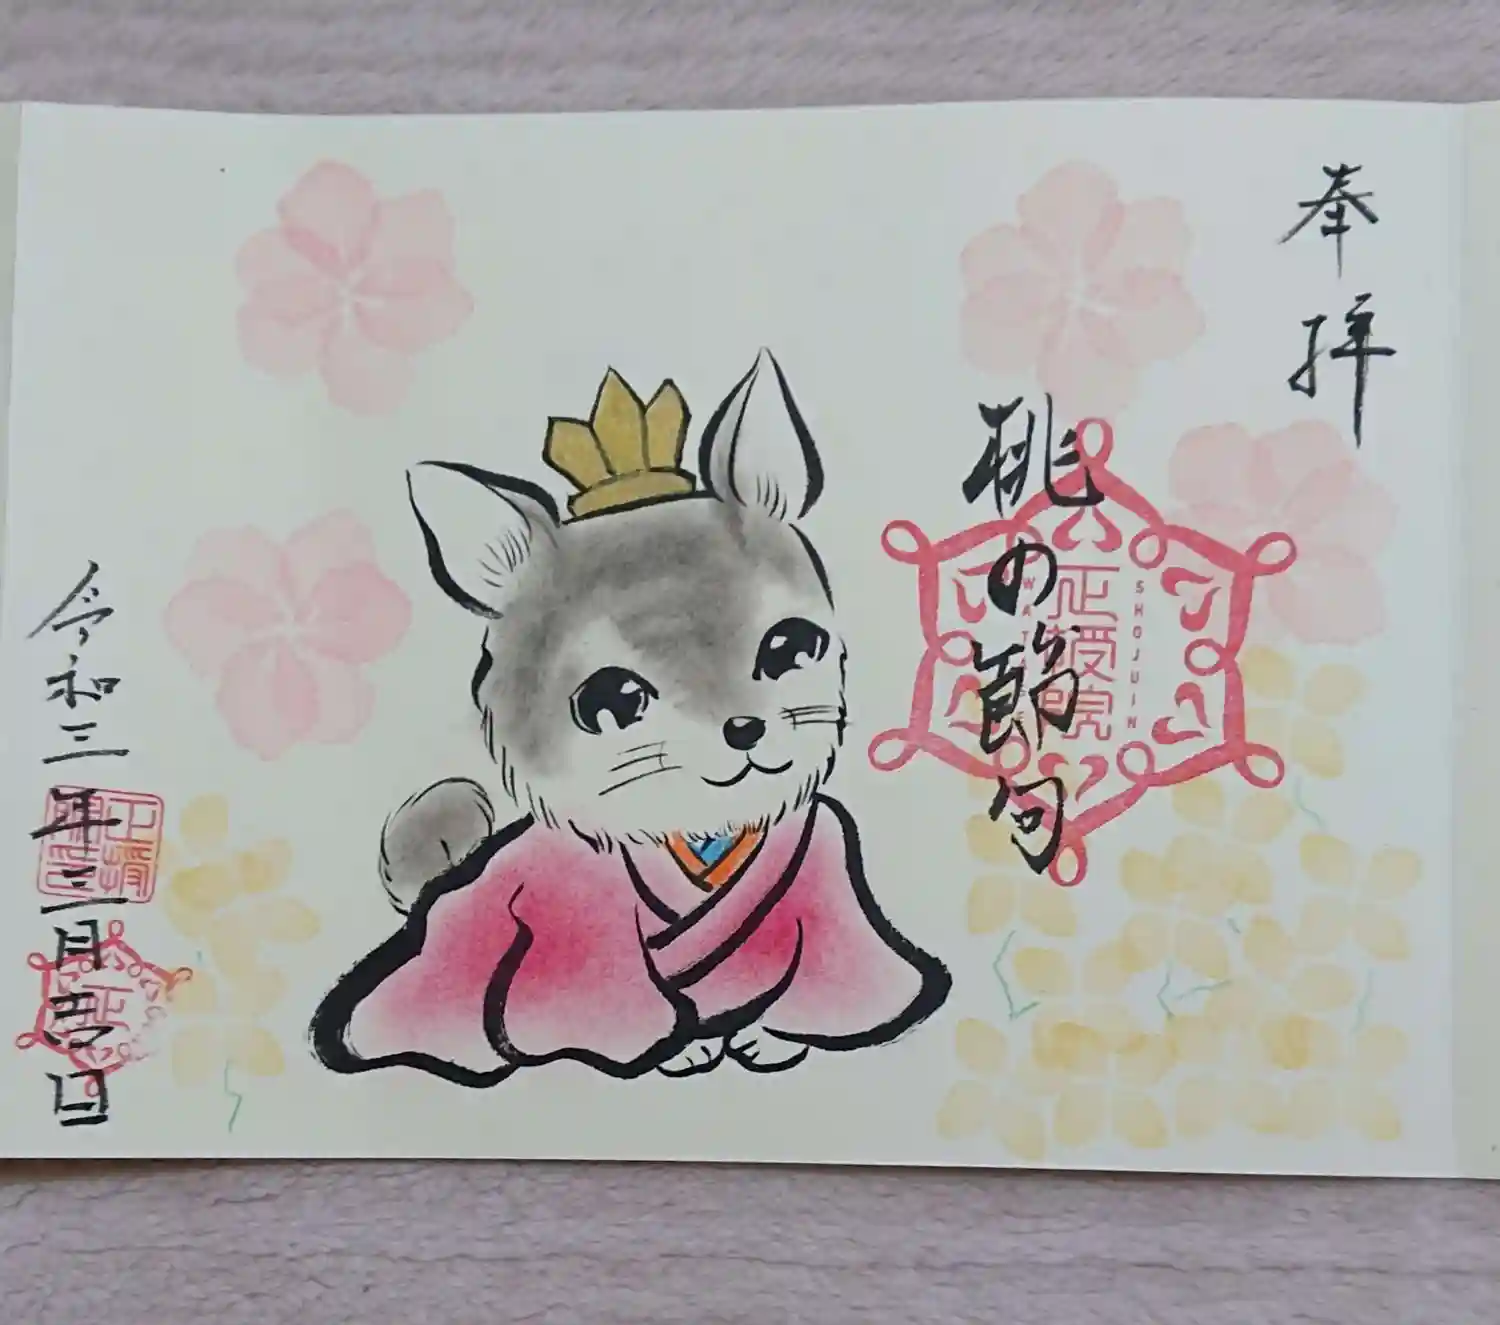 奉拝
桃の節句
正授院
SHOJUIN
令和三年三月吉日
正授
正